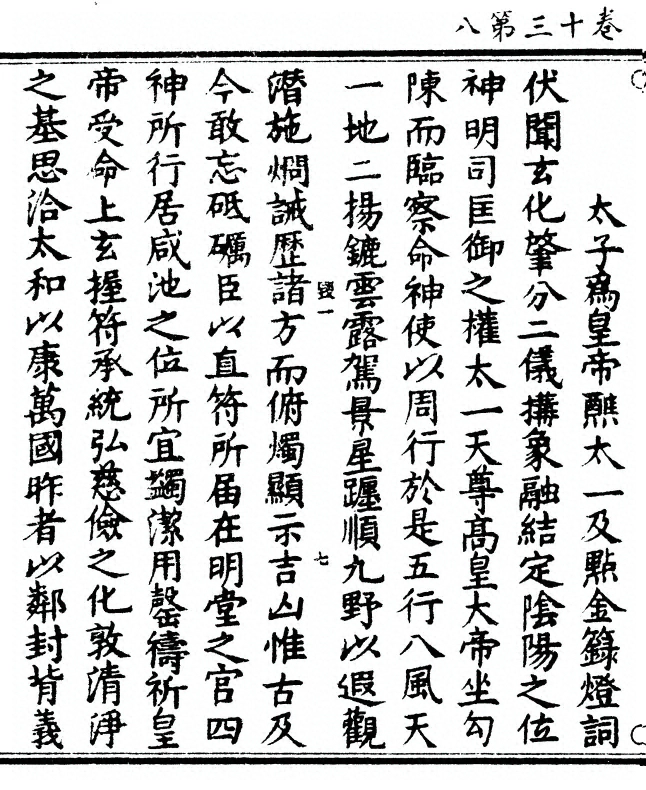 卷十三第八
太子為皇帝醮太一及點金籙燈詞
伏聞玄化肇分二儀搆象融結定陰陽之位
神明司匡御之權太一天尊高皇大帝坐勾
陳而臨察命神使以周行於是五行八風天
一地二揚鑣雲露駕景星躔順九野以遐觀
一 七
潛施燗誡歷諸方而俯燭顯示吉凶惟古及
今敢忘砥礪臣以直符所届在明堂之官四
神所行居咸池之位所宜蠲潔用罄禱祈皇
帝受命上玄握符承統弘慈儉之化敦清淨
之基思洽太和以康萬國昨者以鄰封背義